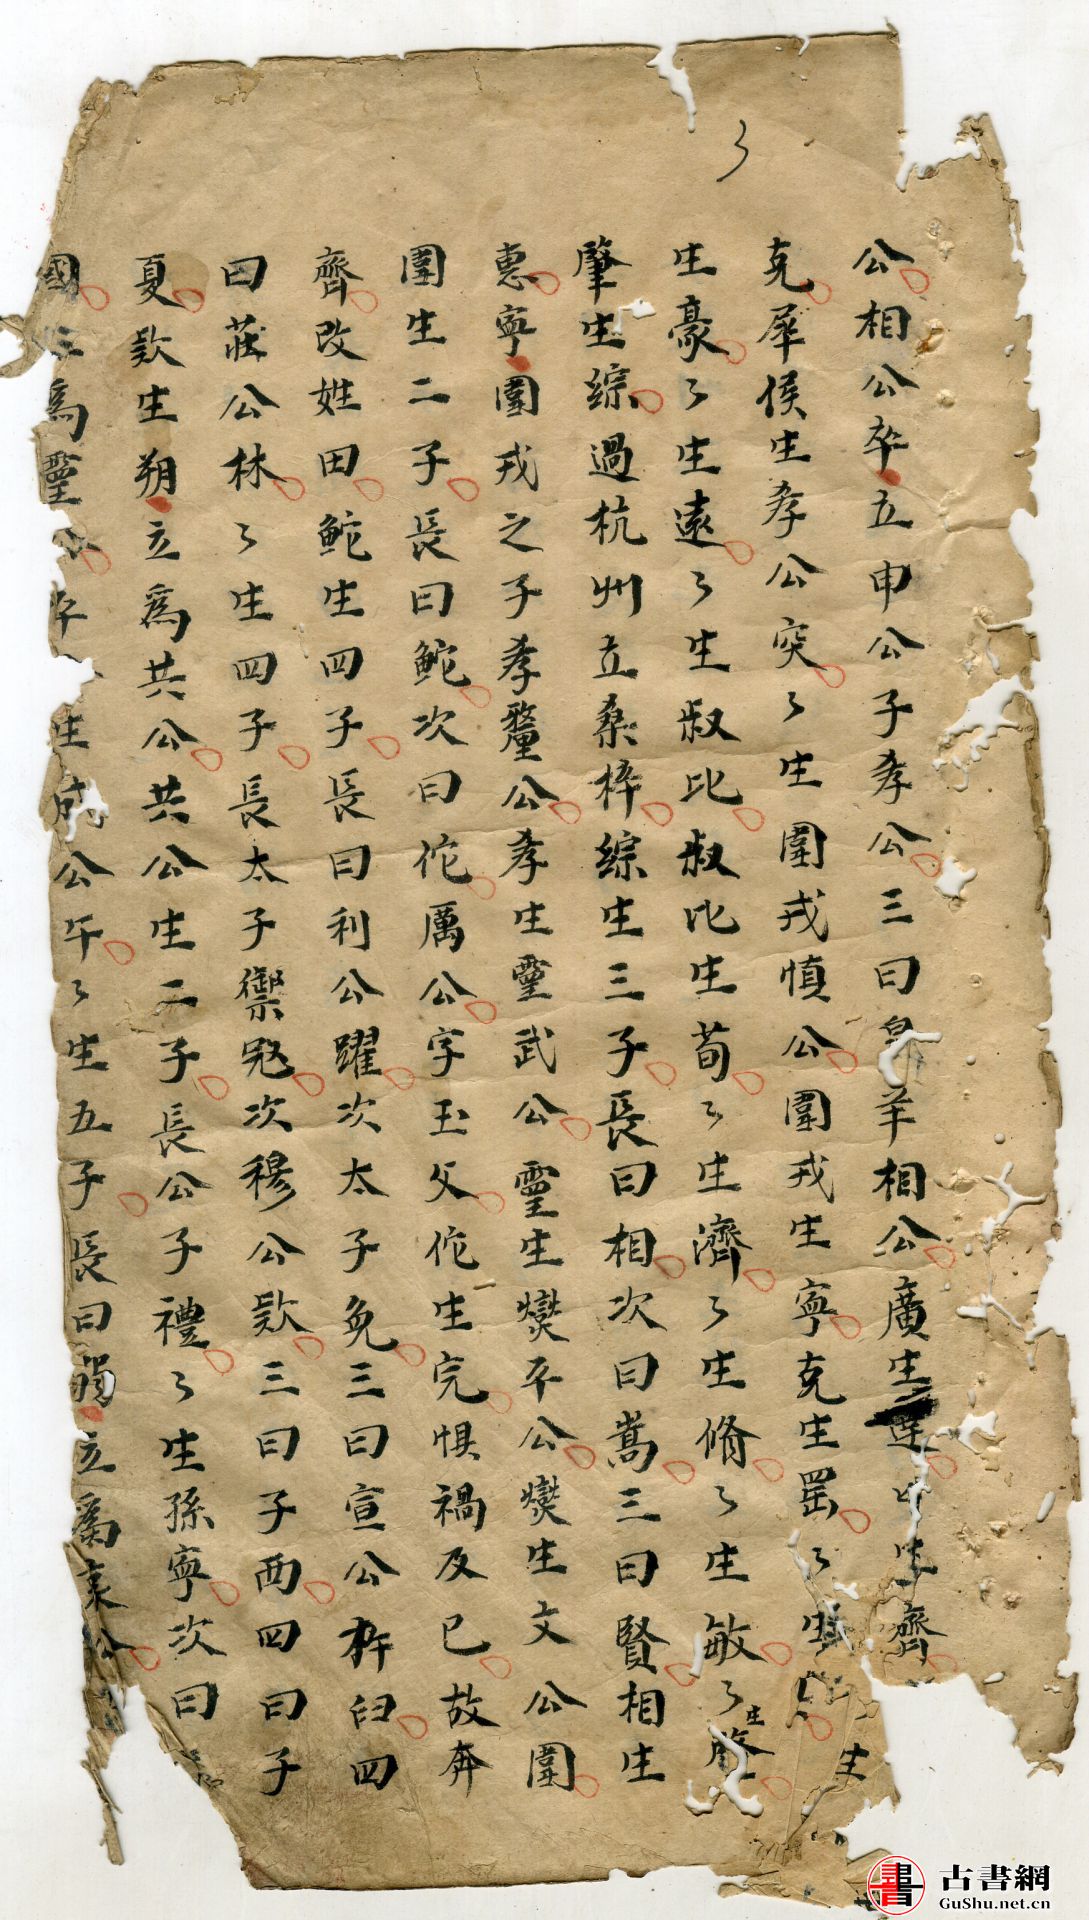 公相公卒立申公子孝公三曰皋羊相公廣生達々生齊
克犀侯生孝公突々生圍戎慎公圍戎生寧克生罡々生
生豪々生遠々生叔比叔比生荀々生濟々生脩々生敏々生肇
肇生綜過杭州立桑梓綜生三子長曰相次曰嵩三曰賢相生
惠寧圍戎之子孝釐公孝生靈武公靈生燮平公燮生文公圍
圍生二子長曰鮀次曰佗厲公字玉父佗生完惧禍及已故奔
齊改姓田鮀生四子長曰利公躍次太子免三曰宣公杵臼四
曰莊公林々生四子長太子禦寇次穆公款三曰子西四曰子
夏款生朔立為共公共公生二子長公子禮々生孫寧次曰
國立為靈公平生成公午々生五子長曰弱立為哀公
古書網
GuShu.net.cn